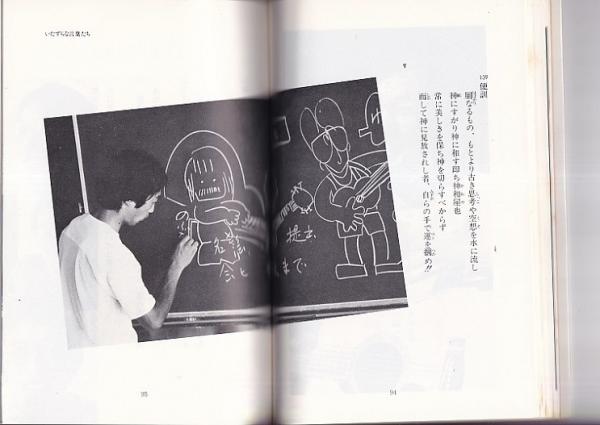 いたずらな言葉たち
139 便訓
厠なるもの、もとより古き思考や空想を水に流し
神にすがり神に和す即ち神和屋也
常に美しきを保ち神を切らすべからず
而して神に見放されし者、自らの手で運を掴め!!
提出
名簿
まで
95
94